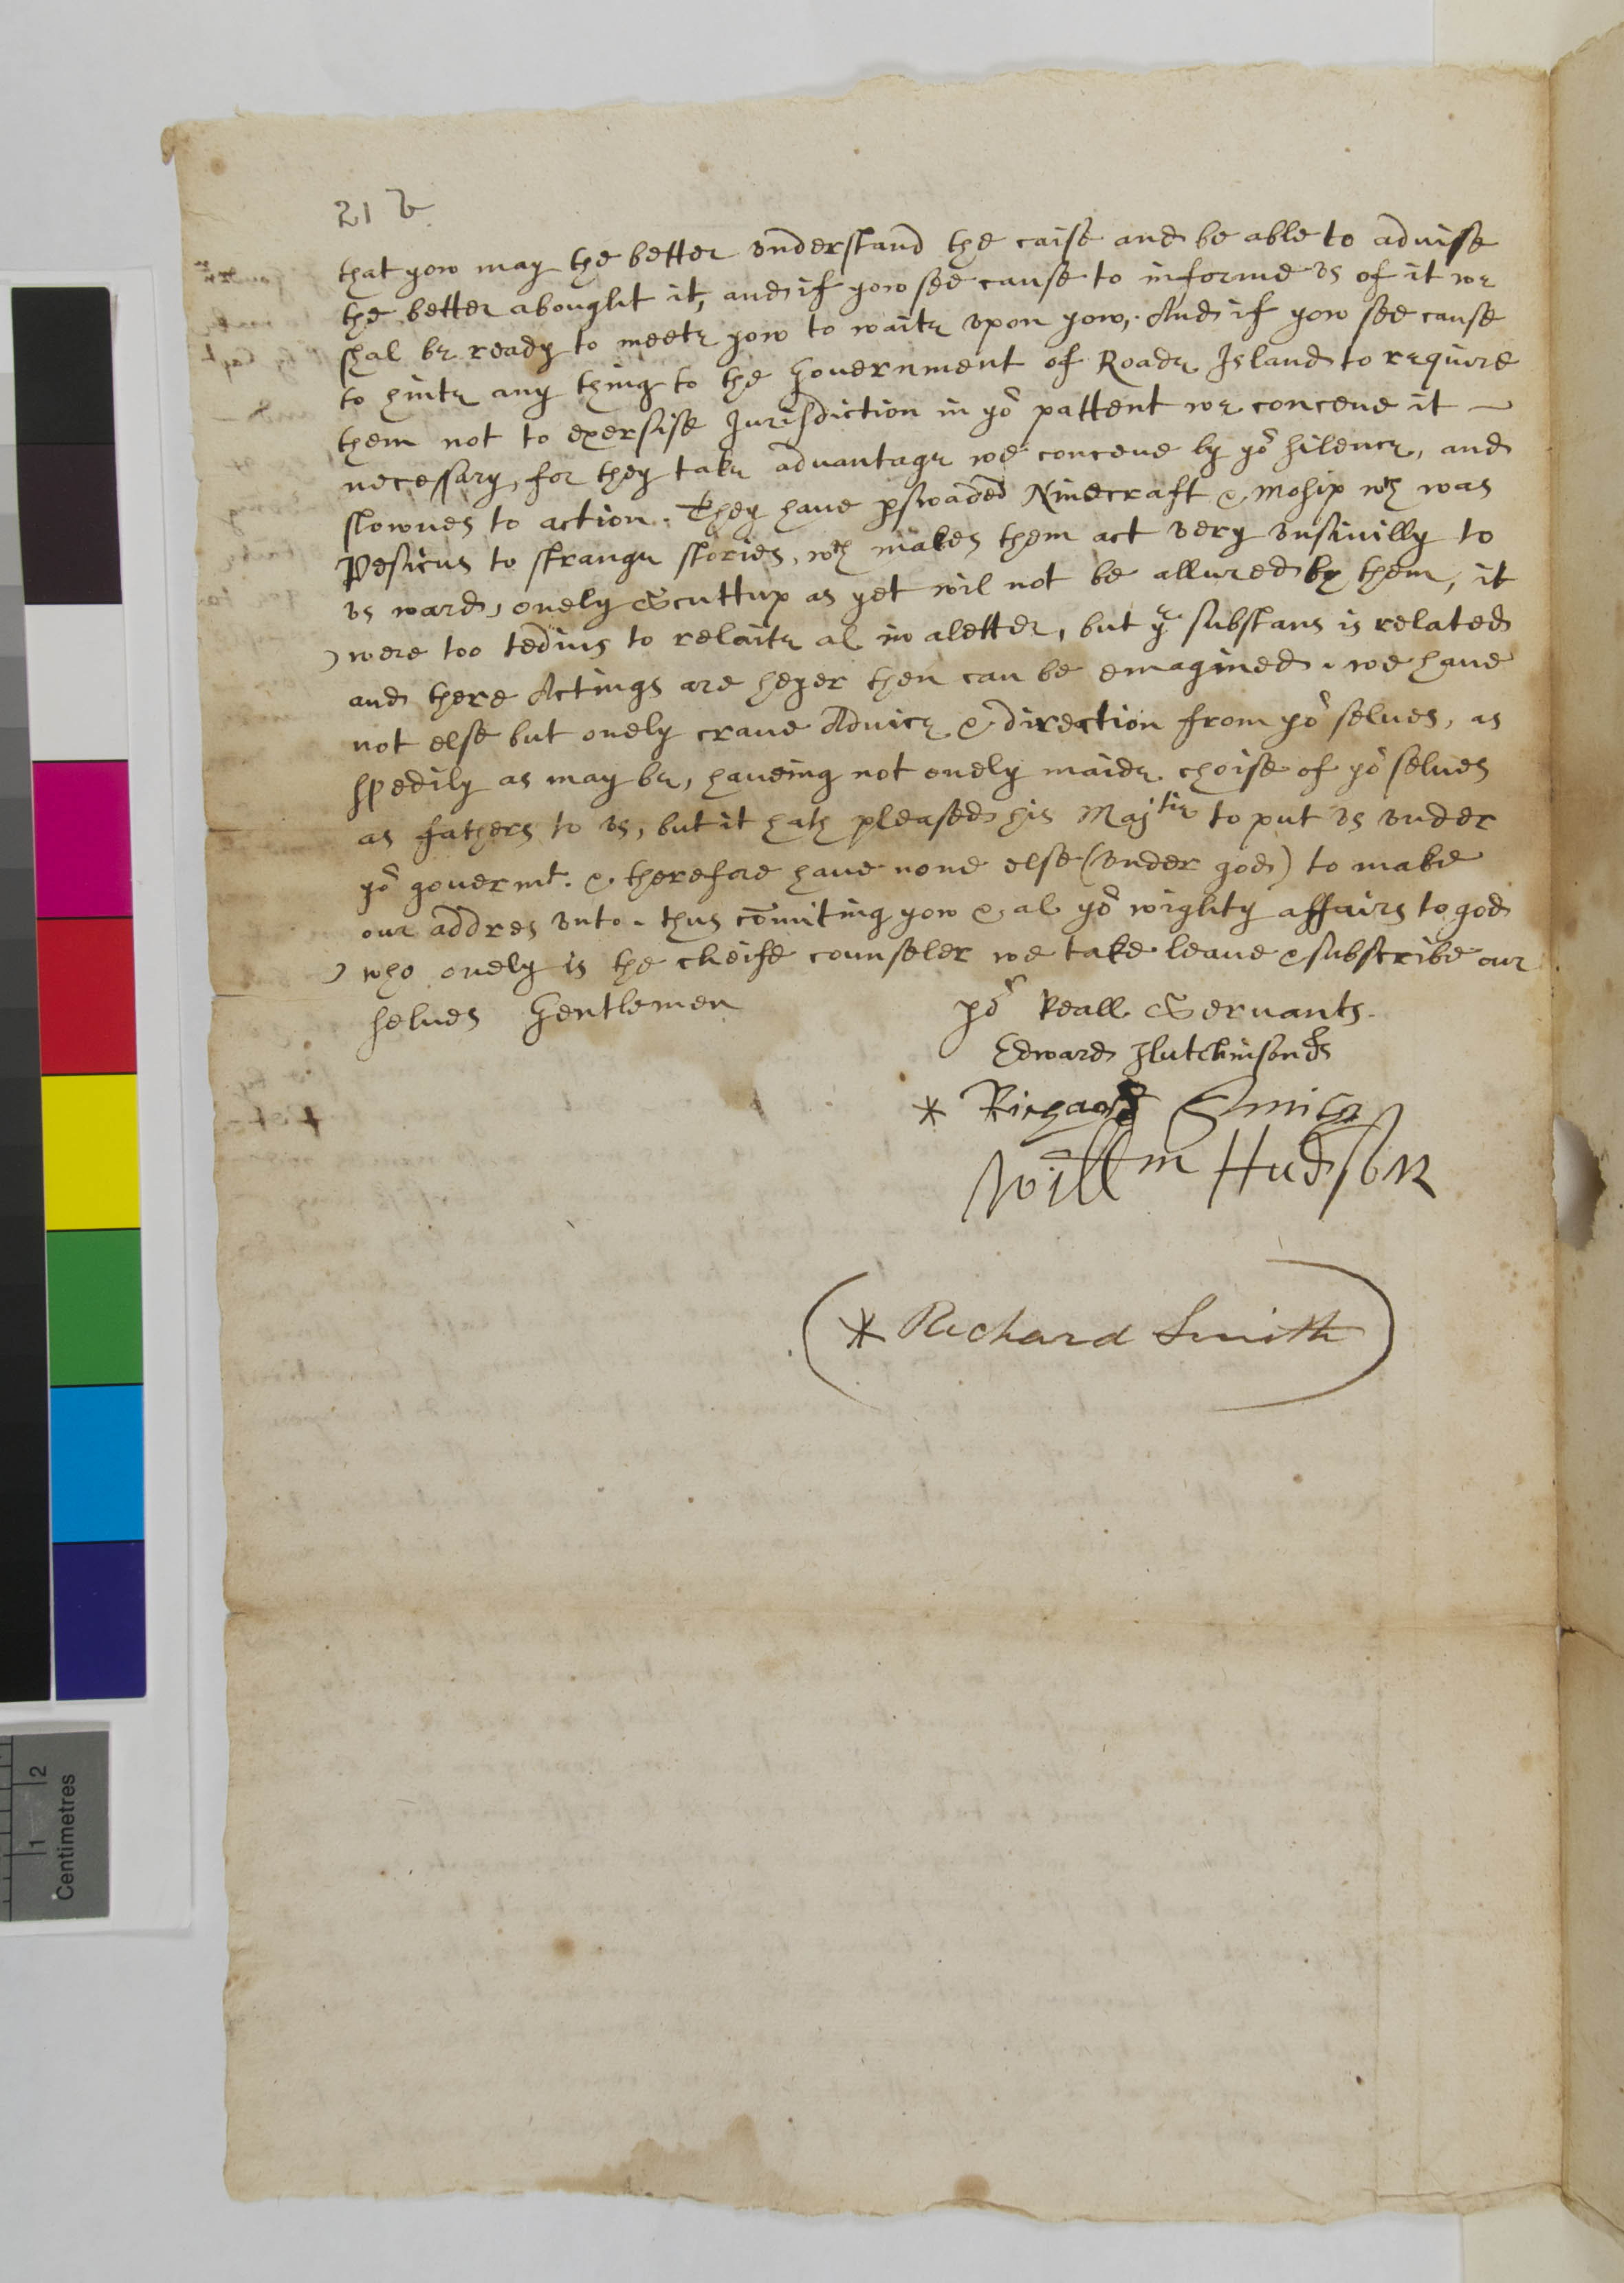 21 b
that yow may the better vnderstand the caise and be able to aduise
the better abought it, and if yow see cause to informe vs of it we
shal be ready to meete yow to waite vpon yow, And if yow see cause
to hinte any thing to the Gouernment of Roade Island to require
them not to exersise Jurisdiction in yor pattent we conceue it
necessary, for they take aduantage we conceue by yor silence, and
slownes to action. They haue pswaded Ninecraft & Mosip wch was
Pesicus to strange stories, wch makes them act very vnsiuilly to
vs ward, onely Scuttup as yet wil not be allured by them, it
were too tedius to relaite al in a letter, but ye substans is related
and there Actings are heyer then can be emagined. we haue
not else but onely craue Aduice & direction from yor selues, as
spedily as may be, haueing not onely maide choise of yor selues
as fathers to vs, but it hath pleased his Majtie to put vs vnder
yor gouermt. & therefore haue none else (vnder god) to make
our addres vnto. thus comiting yow & al yor wighty affairs to god
who onely is the cheife counseler we take leaue & subscribe our
selues Gentlemen yor Reall Seruants.
Edward Hutchinson
* Richard Smith
Willm Hudson
(* Richard Smith)
Centimetres
1 2